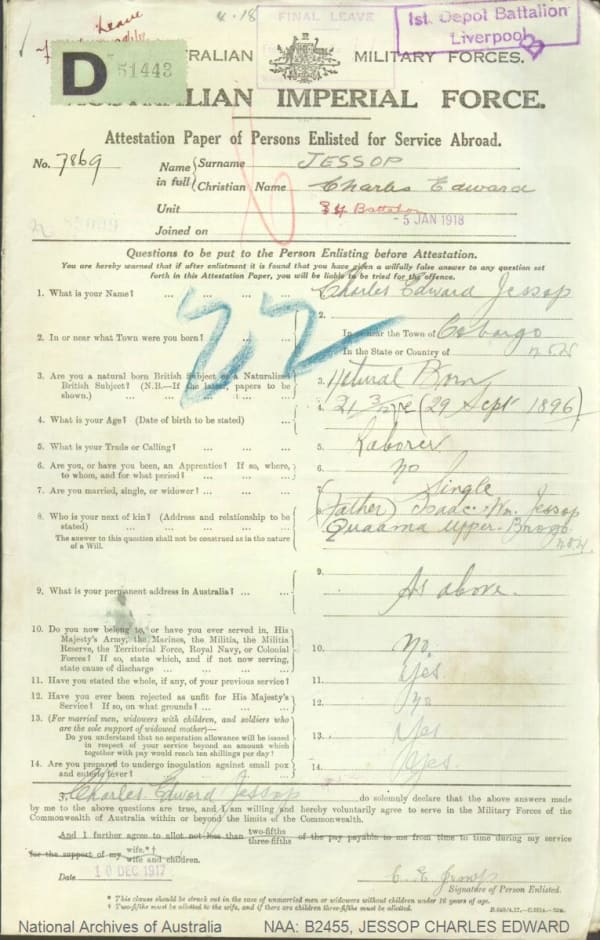 Leave
4.18
FINAL LEAVE
1st. Depot Battalion
Liverpool
D 51443
AUSTRALIAN MILITARY FORCES.
AUSTRALIAN IMPERIAL FORCE.
Attestation Paper of Persons Enlisted for Service Abroad.
No. 7869 Name in full { Surname JESSOP
Christian Name Charles Edward
Unit 34 Battalion
Joined on - 5 JAN 1918
Questions to be put to the Person Enlisting before Attestation.
You are hereby warned that if after enlistment it is found that you have given a wilfully false answer to any question set
forth in this Attestation Paper, you will be liable to be tried for the offence.
22
1. What is your Name? ... ... ... ... Charles Edward Jessop
2. In or near what Town were you born? ... ... 2. In or near the Town of Cobargo
In the State or Country of NSW
3. Are you a natural born British Subject or a Naturalized
British Subject? (N.B.—If the latter, papers to be
shown.) ... ... ... ... ... 3. Natural Born
4. What is your Age? (Date of birth to be stated) ... 4. 21 3/12 (29 Sept 1896)
5. What is your Trade or Calling? ... ... ... 5. Laborer
6. Are you, or have you been, an Apprentice? If so, where,
to whom, and for what period? ... ... ... 6. no
7. Are you married, single, or widower? ... ... 7. Single
8. Who is your next of kin? (Address and relationship to be
stated) ... ... ... ... ... 8. (Father) Isaac Wm. Jessop
The answer to this question shall not be construed as in the nature
of a Will.
Quaama upper Brogo
NSW
9. What is your permanent address in Australia? ... ... 9. As above.
10. Do you now belong to, or have you ever served in, His
Majesty's Army, the Marines, the Militia, the Militia
Reserve, the Territorial Force, Royal Navy, or Colonial
Forces? If so, state which, and if not now serving,
state cause of discharge ... ... ... 10. No.
11. Have you stated the whole, if any, of your previous service? 11. Yes.
12. Have you ever been rejected as unfit for His Majesty's
Service? If so, on what grounds? ... ... ... 12. No
13. (For married men, widowers with children, and soldiers who
are the sole support of widowed mother)—
Do you understand that no separation allowance will be issued
in respect of your service beyond an amount which
together with pay would reach ten shillings per day? 13. Yes
14. Are you prepared to undergo inoculation against small pox
and enteric fever? ... ... ... ... 14. Yes.
I, Charles Edward Jessop do solemnly declare that the above answers made
by me to the above questions are true, and I am willing and hereby voluntarily agree to serve in the Military Forces of the
Commonwealth of Australia within or beyond the limits of the Commonwealth.
And I further agree to allot not less than two-fifths three-fifths of the pay payable to me from time to time during my service
for the support of my wife.*† wife and children.
Date 10 DEC 1917
C. E. Jessop
Signature of Person Enlisted.
* This clause should be struck out in the case of unmarried men or widowers without children under 16 years of age.
† Two-fifths must be allotted to the wife, and if there are children three-fifths must be allotted.
National Archives of Australia NAA: B2455, JESSOP CHARLES EDWARD